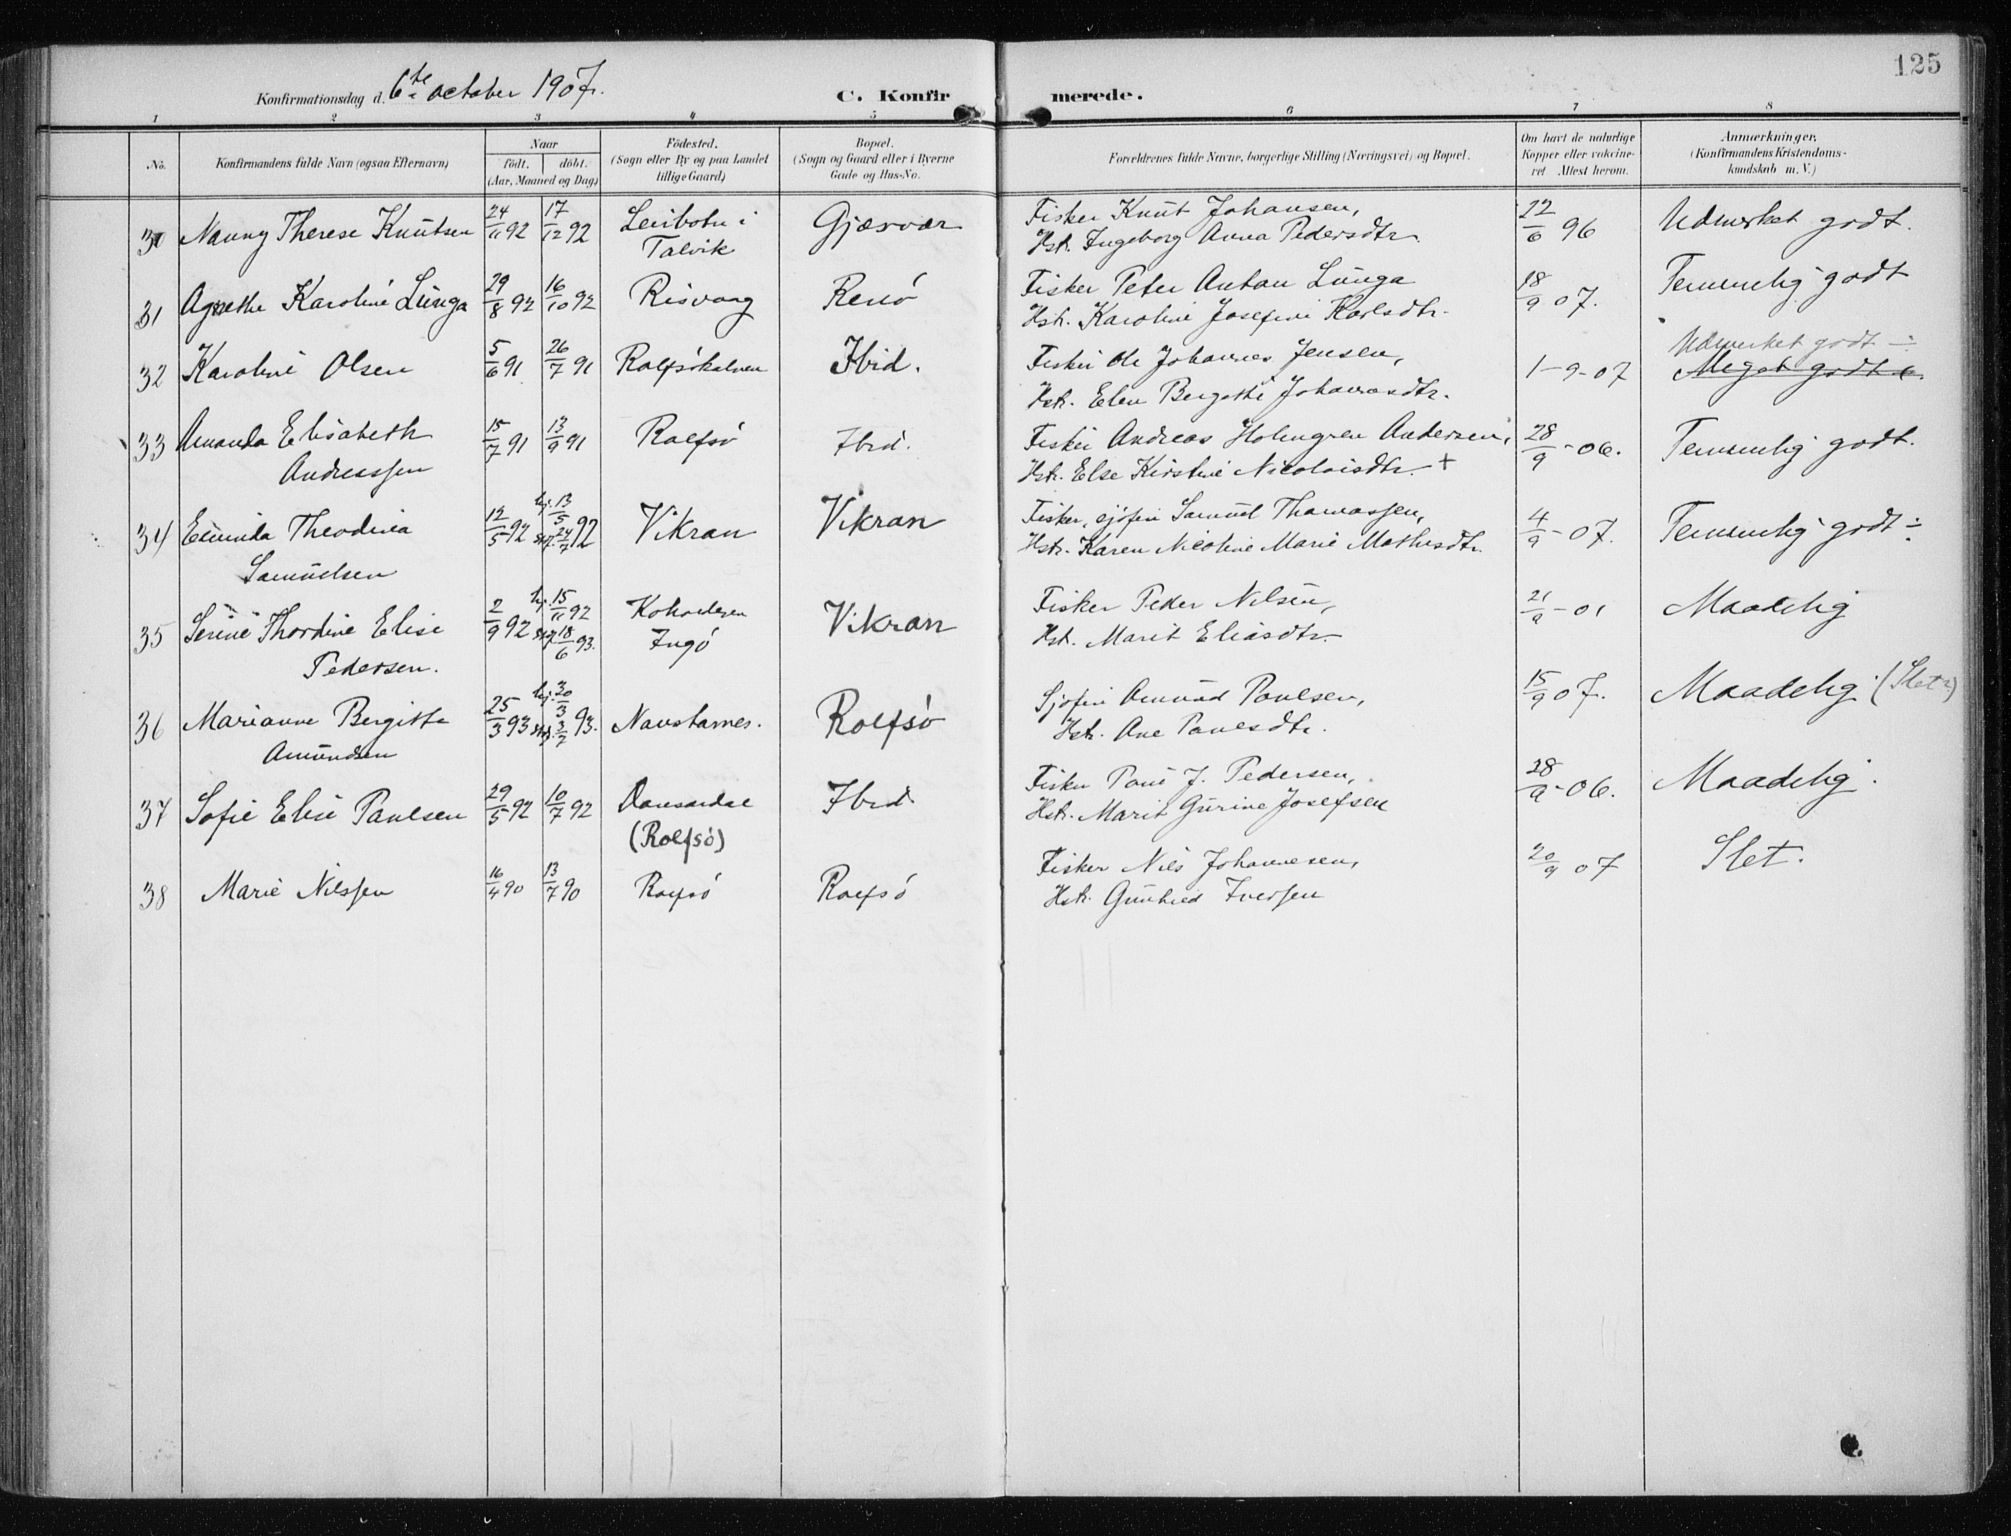 125
Konfirmationsdag d. 6te october 1907.
C. Konfirmerede.
1 2 3 4 5 6 7 8
No. Konfirmandens fulde Navn (ogsaa Efternavn) Naar födt. döbt. (Aar, Maaned og Dag) Födested. (Sogn eller By og paa Landet tillige Gaard) Bopæl. (Sogn og Gaard eller i Byerne Gade og Hus-No. Forældrenes fulde Navne, borgerlige Stilling (Næringsvei) og Bopæl. Om havt de naturlige Kopper eller vakcineret. Attest herom. Anmærkninger, (Konfirmandens Kristendomskundskab m. V.)
30 Nanny Therese Knutsen 24/11 92 17/12 92 Leirbotn i Gjæsvær Fisker Knut Johansen, 22/6 96 Udmerket godt.
Talvik Hst. Ingeborg Anna Pedersdtr.
31 Agnethe Karoline Lunga 29/8 92 16/10 92 Risvaag Rensö Fisker Peter Anton Lunga 18/9 07. Temmelig godt
Hst. Karoline Josefine Karlsdtr.
32 Karoline Olsen 5/6 91 26/7 91 Rolfsökalven Ibid. Fisker Ole Johannes Jensen, 1-9-07 Udmerket godt ÷
Hst. Elen Bergithe Johannasdtr. Meget godt
33 Amanda Elisabeth 15/7 91 13/9 91 Rolfsö Ibid. Fisker Andreas Holmgren Andersen, 28/9-06. Temmelig godt.
Andreassen Hst. Else Kirstine Nicolaisdtr. +
34 Theodina 12/5 92 hj. 13/5 stf. 24/7 92 Vikran Vikran Fisker, sjöfin Samuel Thomassen, 4/9-07. Temmelig godt ÷
Samuelsen Hst. Karen Nicoline Marie Mathisdtr.
35 Serine Thordine Elise 2/9 92 hj. 15/11 92 stf. 18/6 93. Vikran Fisker Peder Nilsen, 21/9-01 Maadelig
Pedersen. Ingö Hst. Marit Eliasdtr.
36 Marianne Bergitte 25/3 93 hj. 30/3 stf. 3/7 93. Navstarnes. Rolfsö Sjöfin Amund Paulsen, 15/9 07. Maadelig (Slet?)
Amundsen Hst. Ane Paulsdtr.
37 Sofie Elise Paulsen 29/5 92 10/7 92 Ibid Fisker Paul J. Pedersen, 28/9-06. Maadelig.
(Rolfsö) Hst. Marit Gurine Josefsen
38 Marie Nilssen 16/4 90 13/7 90 Rolfsö Rolfsö Fisker Nils Johannesen, 20/9 07 Slet.
Hst. Gunhild Iversen